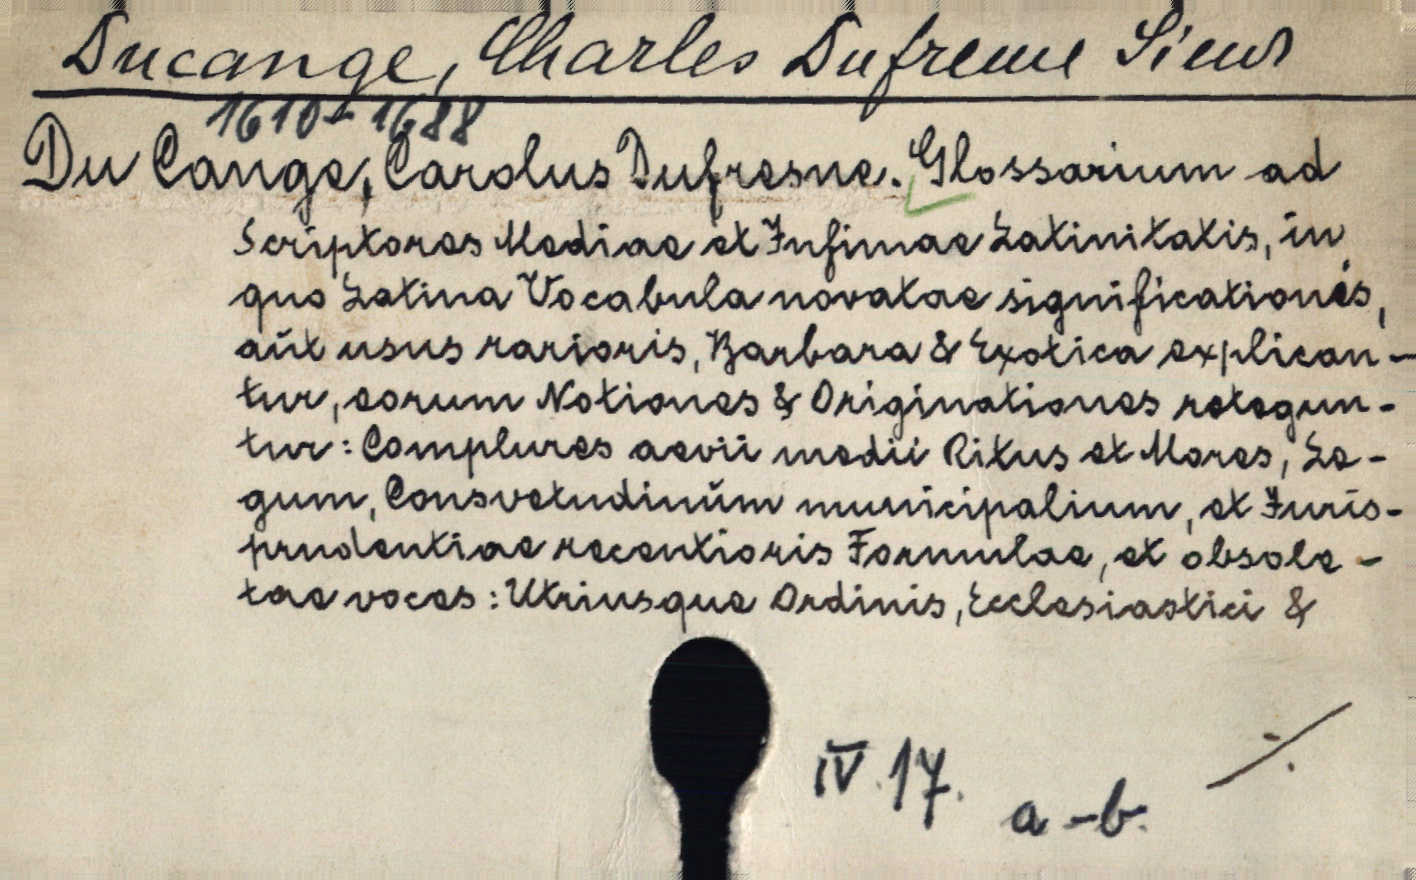 Ducange, Charles Dufresne Sieur
1610-1688
Du Cange, Carolus Dufresne. Glossarium ad
Scriptores Mediae et Infimae Latinitatis, in
quo Latina Vocabula novatae significationés,
aŭt usus rarioris, Barbara & Exotica explican-
tur, eorum Notiones & Originationes retegun-
tur: Complures aevii medii Ritus et Mores, Le-
gum, Consvetudinŭm municipalium, et Juris-
prudentiae recentioris Formulae, et obsole-
tae voces: Utriusque Ordinis, Ecclesiastici &
IV. 17.
a-b.
./.